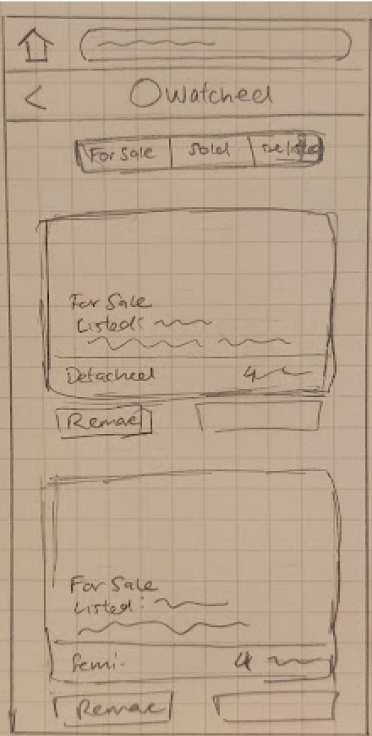 Watched
For Sale | Sold | Delisted
For Sale
Listed:
Detached 4
Remove
For Sale
Listed:
Semi. 4
Remove